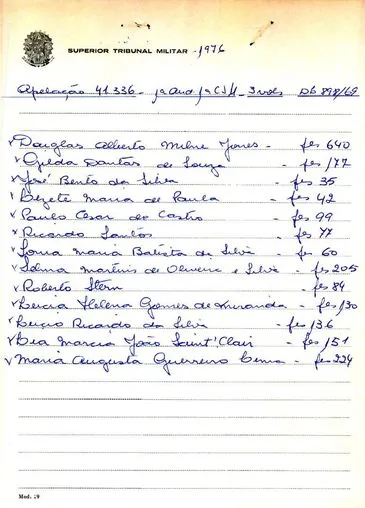 SUPERIOR TRIBUNAL MILITAR -1976
Apelação 41.336 - 1ª Aud/1ª CJM - 3 vols
Douglas Alberto Milne Jones - fls 640
Gilda Dantas de Souza - fls 177
José Bento da Silva - fls 35
Maria de Paula - fls 42
Paulo Cesar de Castro - fls 99
Ricardo Santos - fls 77
Sonia Maria Batista da Silva - fls 60
Selma Martins de Oliveira e Silva - fls 205
Roberto Stern - fls 84
Helena Gomes de Miranda - fls 130
Ricardo da Silva - fls 136
Marcia João Saint'Clair - fls 151
Maria Augusta Guerreiro - fls 224
Mod. 19